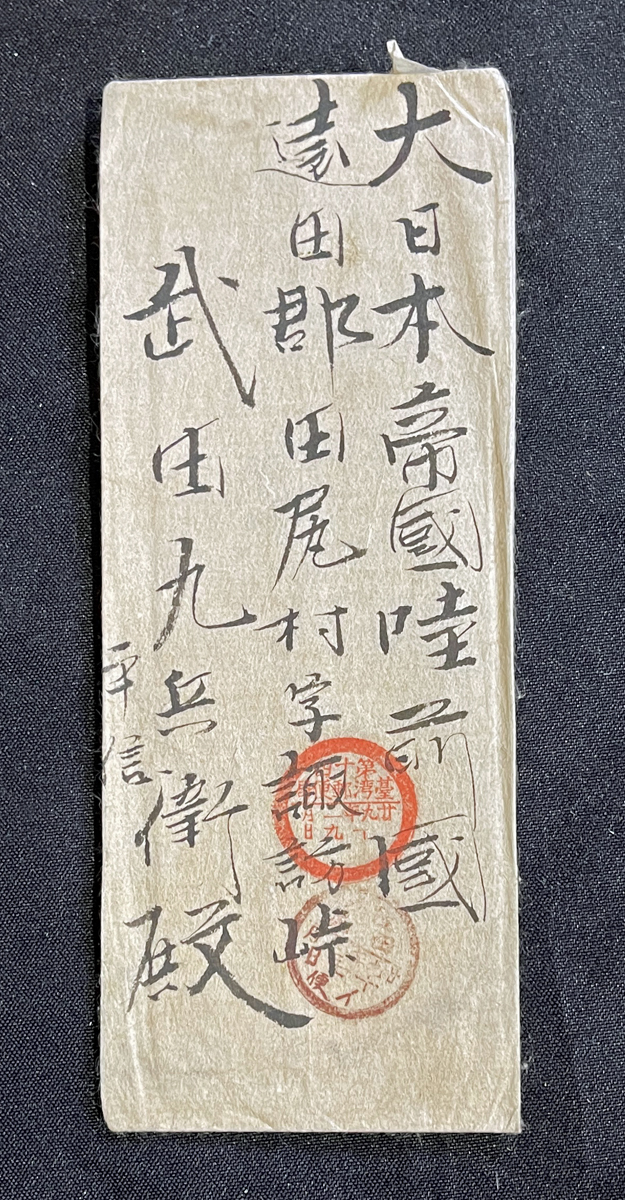 大日本帝國陸前國
遠田郡田尻村字諏訪峠
武田九兵衛殿
平信
臺湾
第十
廿九年